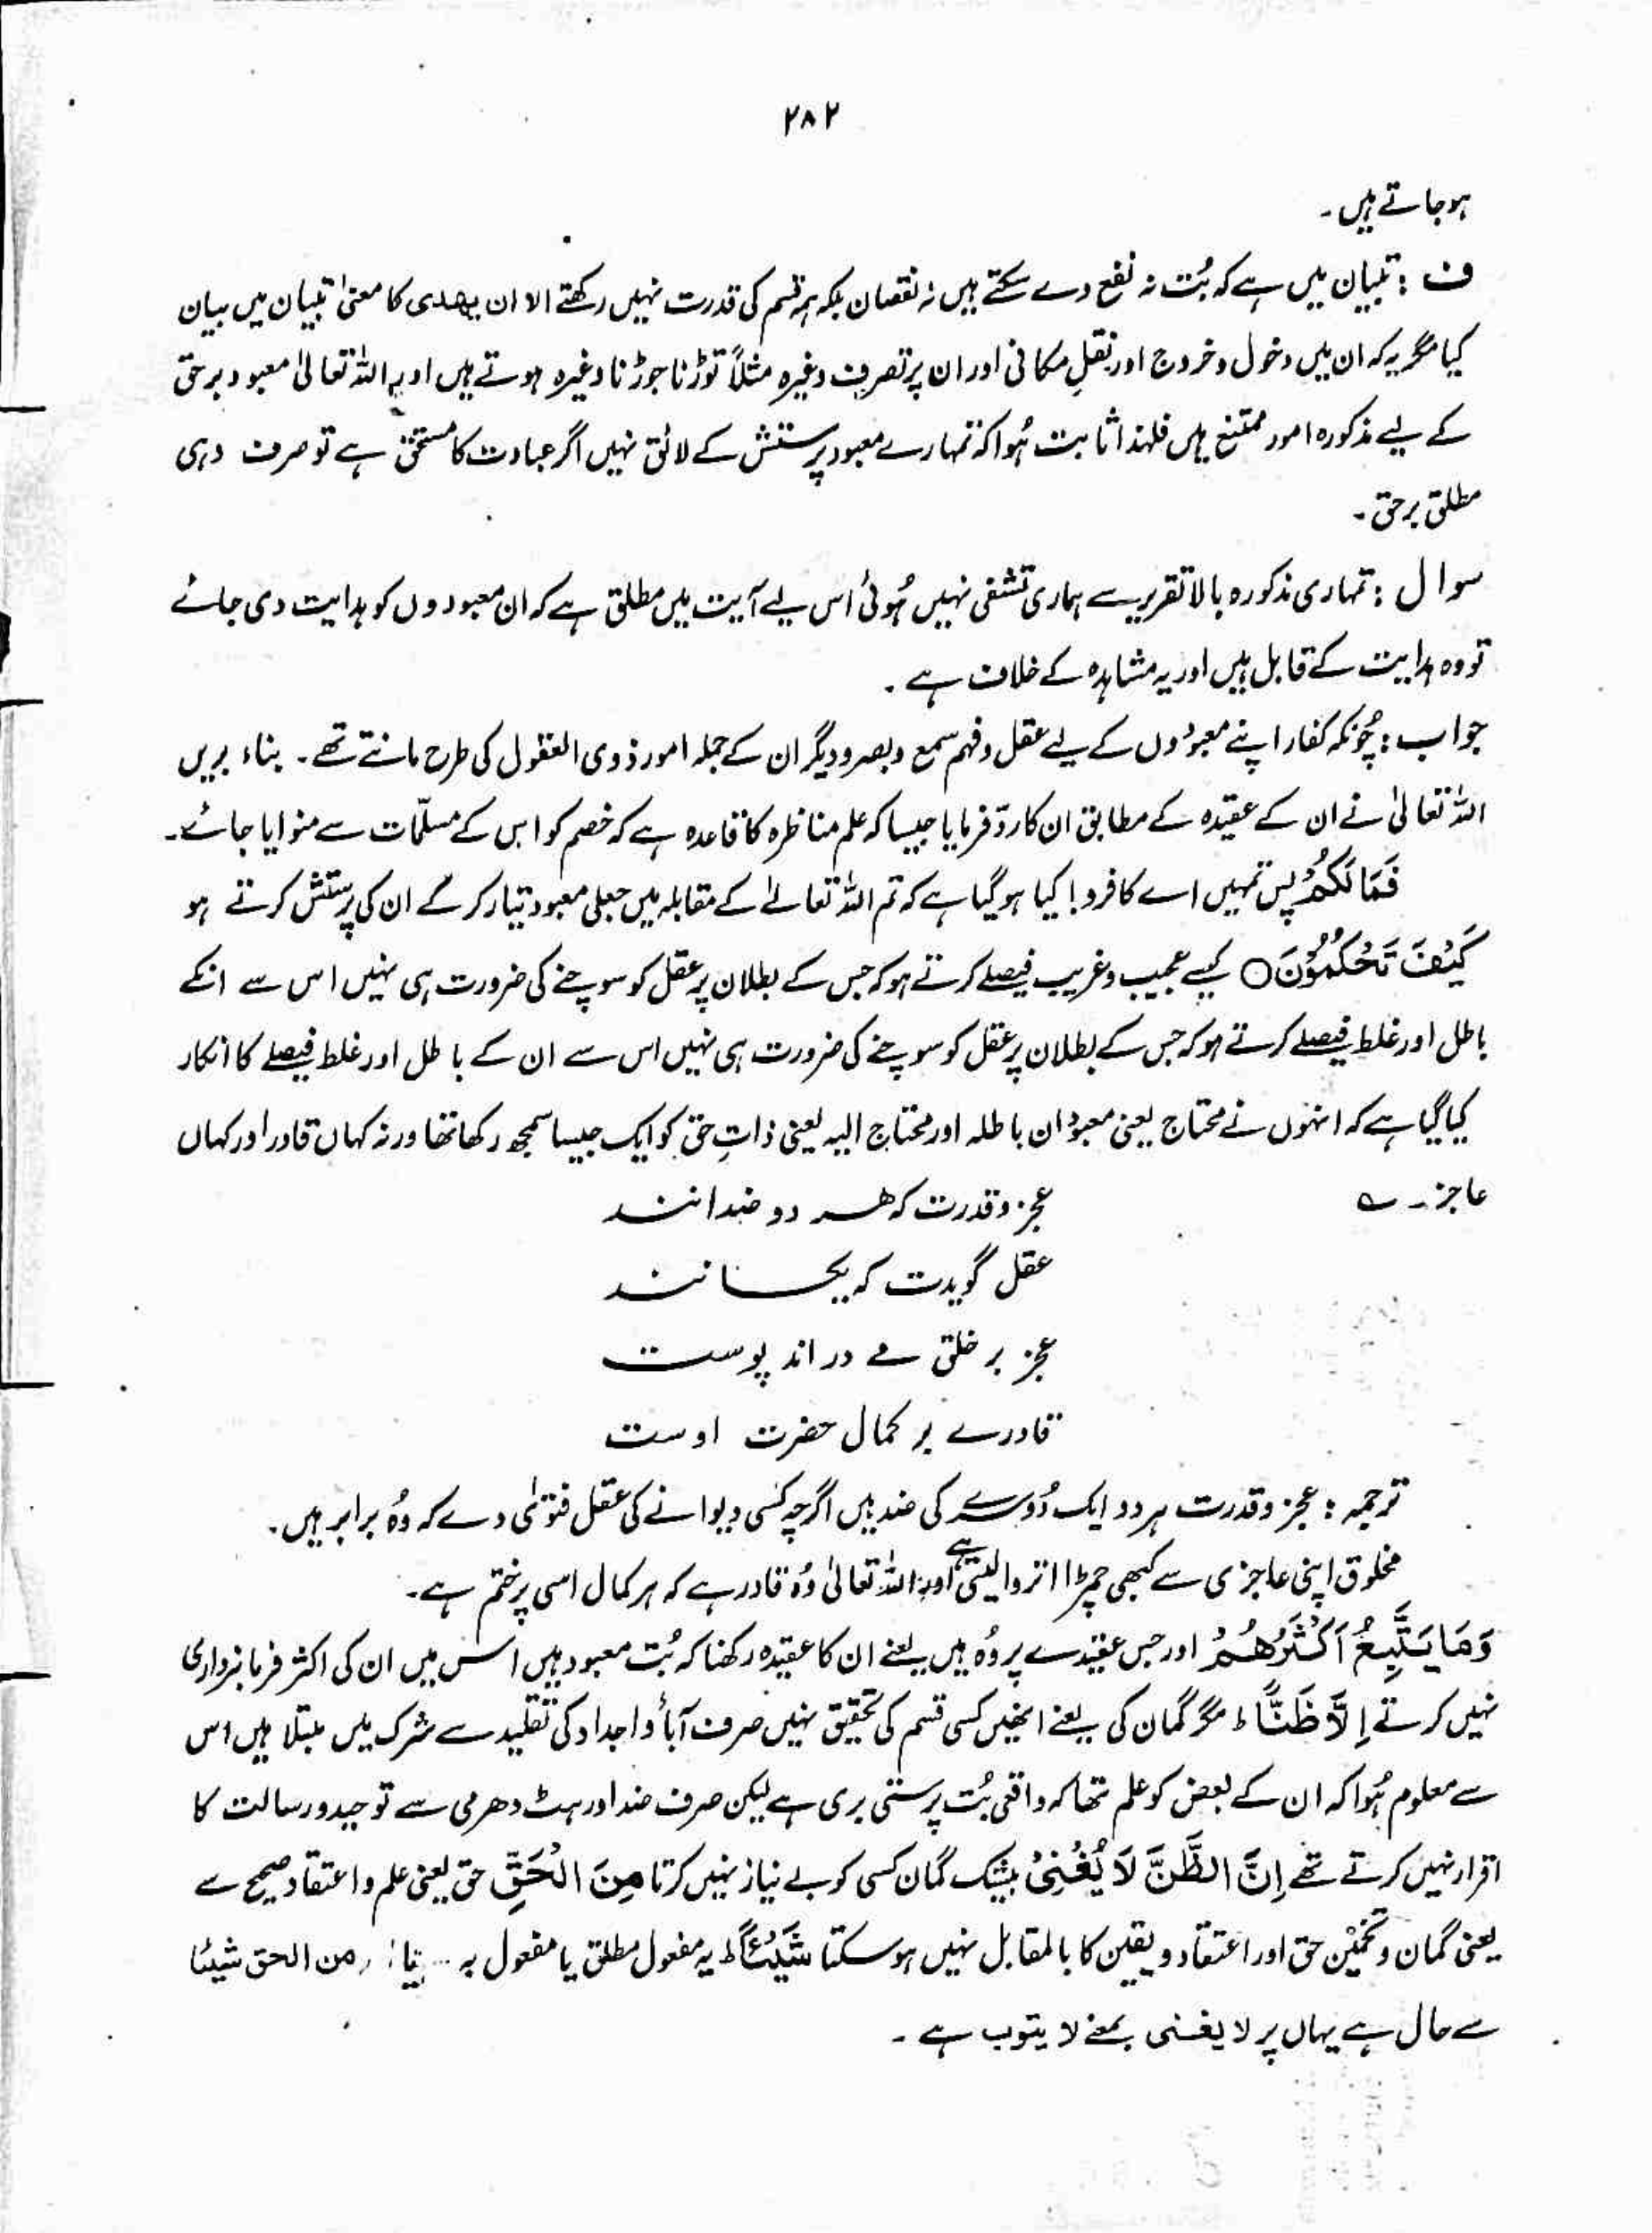 ۲۸۲
ہوجاتے ہیں۔
ف : تبیان میں ہے کہ بُت نہ نفع دے سکتے ہیں نہ نقصان بلکہ ہر قسم کی قدرت نہیں رکھتے الا ان یھدی کا معنیٰ تبیان میں بیان
کیا مگر یہ کہ ان میں دخول و خروج اور نقلِ مکانی اور ان پر تصرف وغیرہ مثلاً توڑنا جوڑنا وغیرہ ہوتے ہیں اور اللہ تعالیٰ معبود برحق
کے لیے مذکورہ امور ممتنع ہیں فلہٰذا ثابت ہُوا کہ تمہارے معبود پرستش کے لائق نہیں اگر عبادت کا مستحق ہے تو صرف وہی
مطلق برحق۔
سوال : تمہاری مذکورہ بالا تقریر سے ہماری تشفی نہیں ہُوئی اس لیے آیت میں مطلق ہے کہ ان معبودوں کو ہدایت دی جائے
تو وہ ہدایت کے قابل ہیں اور یہ مشاہدہ کے خلاف ہے۔
جواب : چُونکہ کفار اپنے معبودوں کے لیے عقل و فہم سمع و بصر و دیگر ان کے جملہ امور ذوی العقول کی طرح مانتے تھے۔ بناء بریں
اللہ تعالیٰ نے ان کے عقیدہ کے مطابق ان کا ردّ فرمایا جیسا کہ علم مناظرہ کا قاعدہ ہے کہ خصم کو اس کے مسلّمات سے منوایا جائے۔
فَمَا لَكُمْ پس تمہیں اے کافرو! کیا ہو گیا ہے کہ تم اللہ تعالےٰ کے مقابلہ میں جعلی معبود تیار کر کے ان کی پرستش کرتے ہو
كَيْفَ تَحْكُمُوْنَ○ کیسے عجیب و غریب فیصلے کرتے ہو کہ جس کے بطلان پر عقل کو سوچنے کی ضرورت ہی نہیں اس سے انکے
باطل اور غلط فیصلے کرتے ہو کہ جس کے بطلان پر عقل کو سوچنے کی ضرورت ہی نہیں اس سے ان کے باطل اور غلط فیصلے کا انکار
کیا گیا ہے کہ انہوں نے محتاج یعنی معبودانِ باطلہ اور محتاج الیہ یعنی ذاتِ حق کو ایک جیسا سمجھ رکھا تھا ورنہ کہاں قادر اور کہاں
عاجز۔ ؎ عجز و قدرت کہ ھر دو ضدانند
عقل گویدت کہ یکسانند
عجز بر خلق مے دراند پوست
قادرے بر کمال حضرت اوست
ترجمہ : عجز و قدرت ہر دو ایک دُوسرے کی ضد ہیں اگرچہ کسی دیوانے کی عقل فتوٰی دے کہ وُہ برابر ہیں۔
مخلوق اپنی عاجزی سے کبھی چمڑا اتروا لیتی ہے اور اللہ تعالیٰ وُہ قادر ہے کہ ہر کمال اسی پر ختم ہے۔
وَمَا يَتَّبِعُ اَكْثَرُهُمْ اور جس عقیدے پر وُہ ہیں یعنے ان کا عقیدہ رکھنا کہ بُت معبود ہیں اس میں ان کی اکثر فرمانبرداری
نہیں کرتے اِلَّا ظَنًّا ط مگر گمان کی یعنے انھیں کسی قسم کی تحقیق نہیں صرف آبأ و اجداد کی تقلید سے شرک میں مبتلا ہیں اس
سے معلوم ہُوا کہ ان کے بعض کو علم تھا کہ واقعی بُت پرستی بری ہے لیکن صرف ضد اور ہٹ دھرمی سے توحید و رسالت کا
اقرار نہیں کرتے تھے اِنَّ الظَّنَّ لَا يُغْنِيْ بیشک گمان کسی کو بے نیاز نہیں کرتا مِنَ الْحَقِّ حق یعنی علم و اعتقاد صحیح سے
یعنی گمان و تخمین حق اور اعتقاد و یقین کا بالمقابل نہیں ہو سکتا شَيْئًا ط یہ مفعول مطلق یا مفعول بہ من الحق شیئا
سے حال ہے یہاں پر لا یغنی بمعنے لا یتوب ہے۔